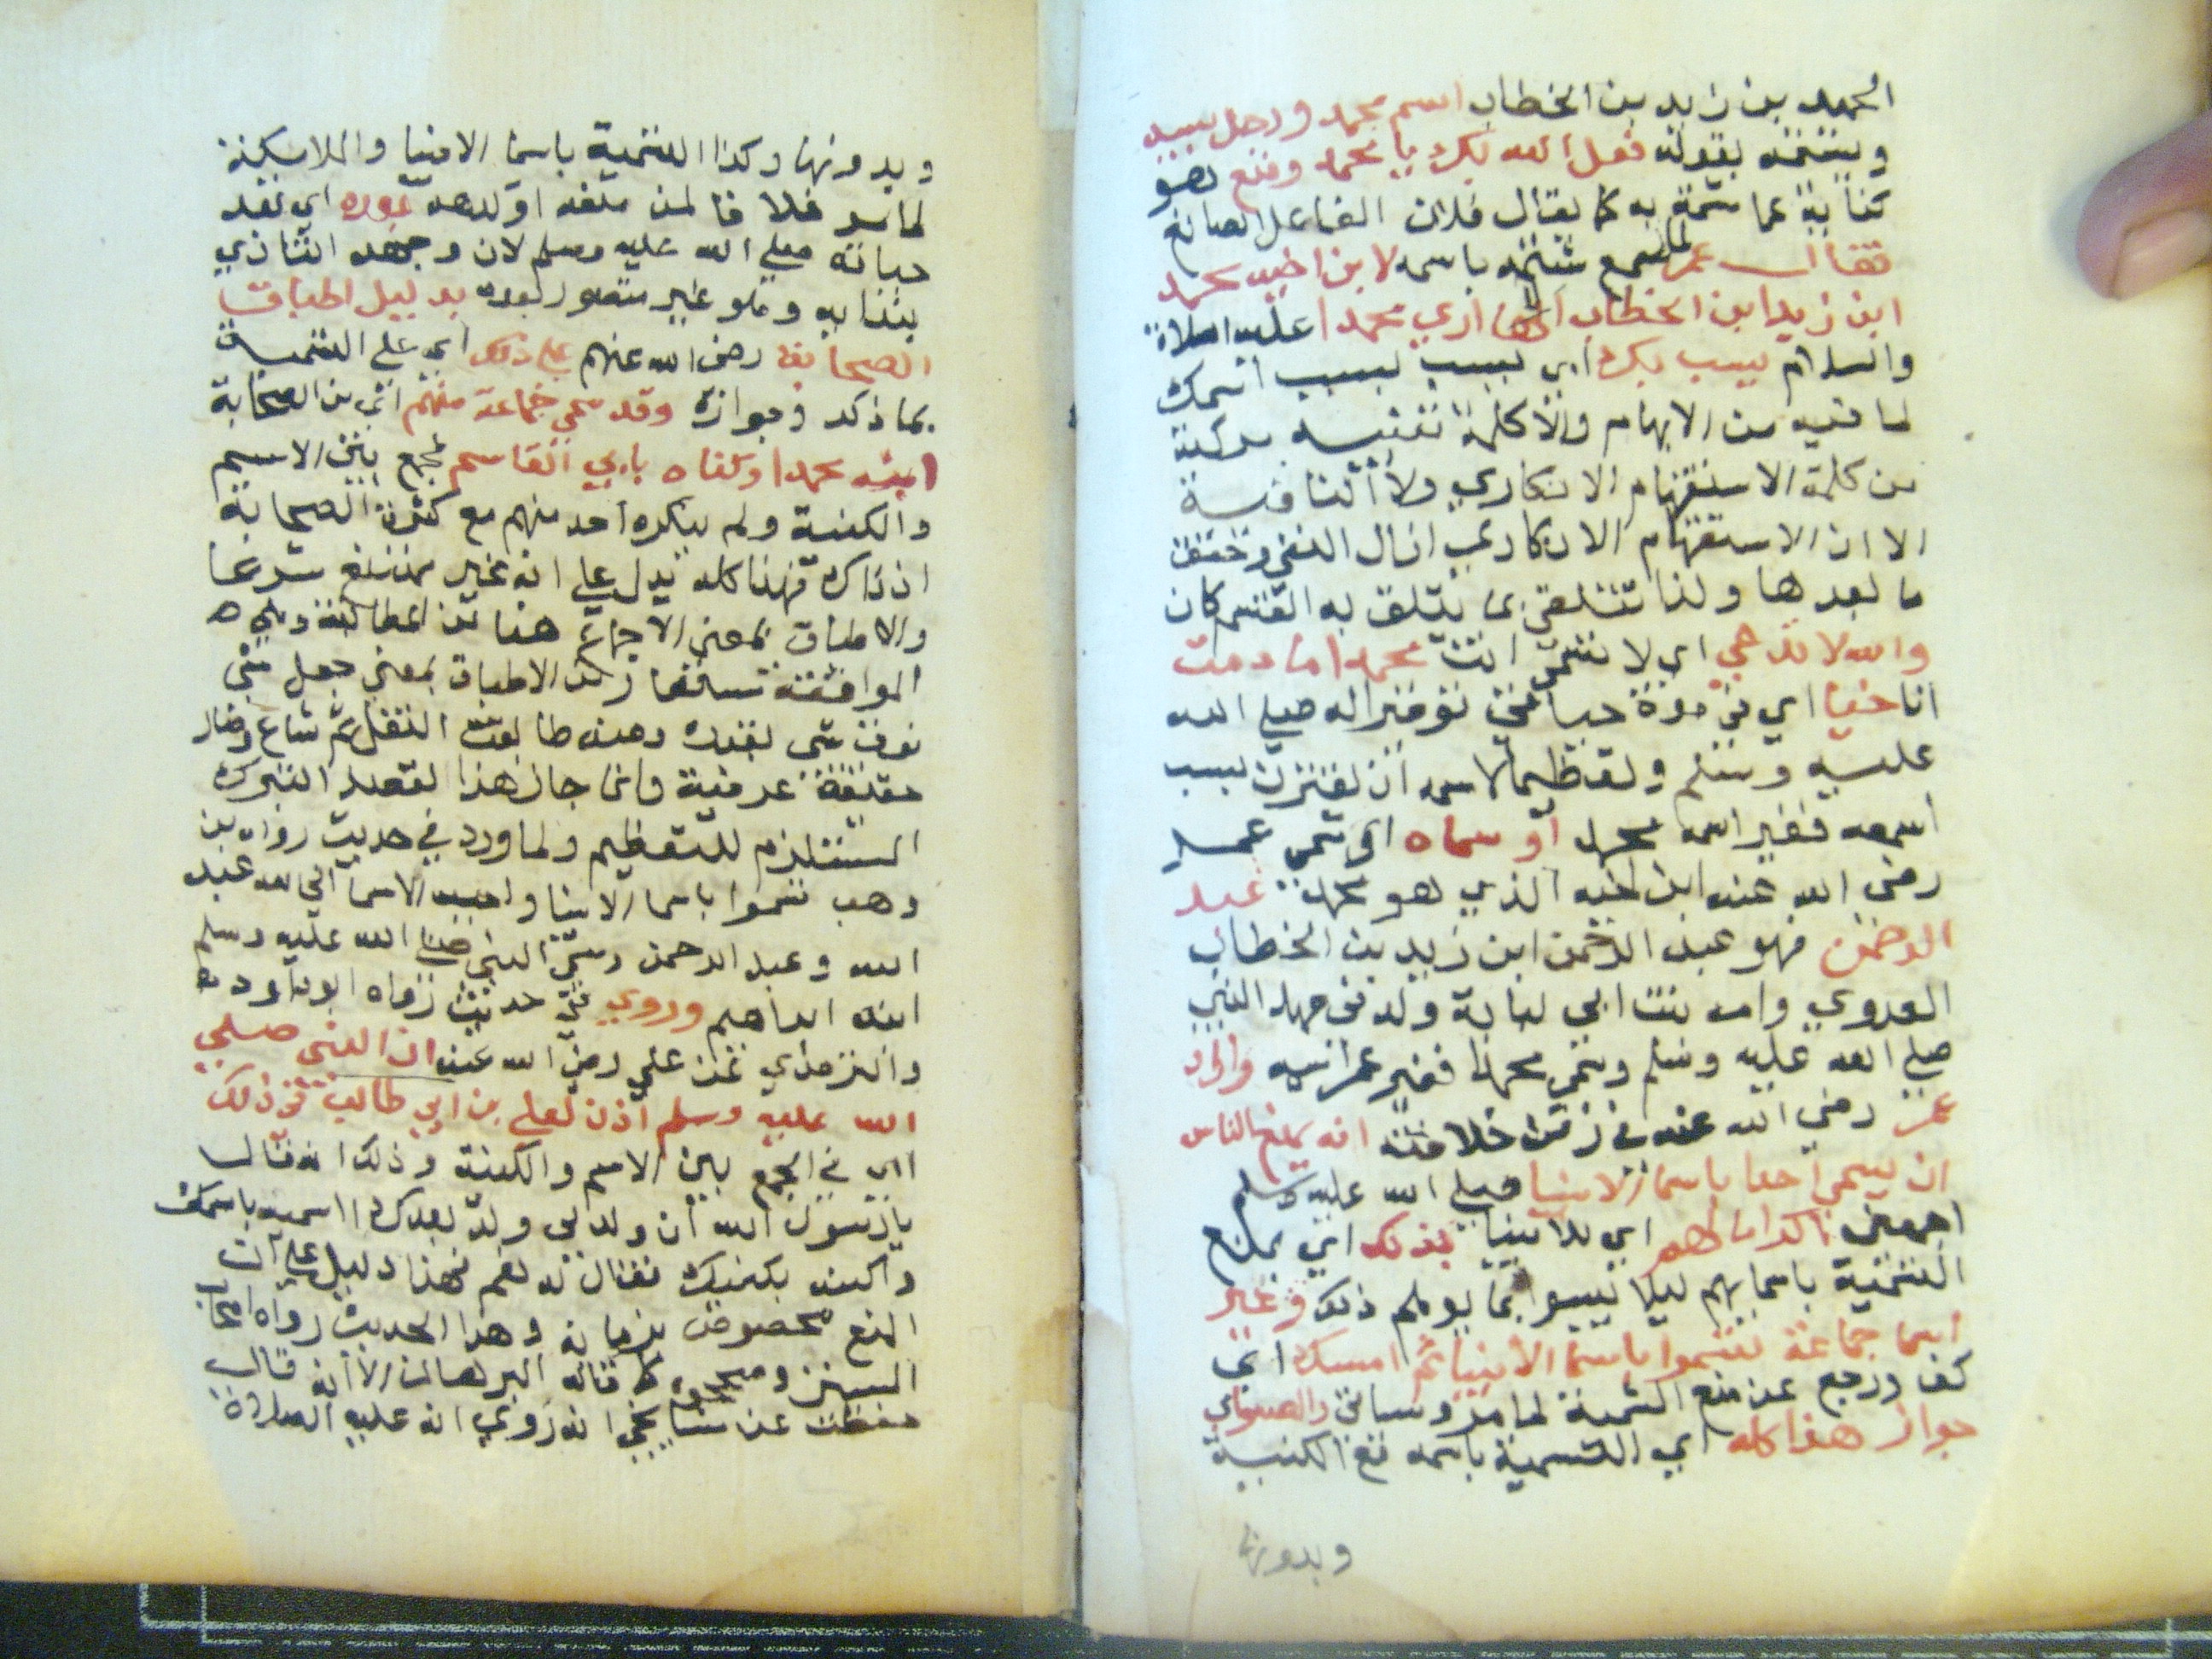 لمحمد بن زيد بن الخطاب اسم محمد ورجل يسبه
ويشتمه بقوله فعل الله بك يا محمد وصنع هو
كناية عما شتمه به كما يقال فلان الفاعل الصانع
فقال عمر لما سمع شتمه باسمه لابن اخيه محمد
ابن زيد ابن الخطاب الا ارى محمدا عليه الصلاة
والسلام يسب بك اي بسبب اسمك
لما فيه من الايهام والا كلمة تنبيه مركبة
من كلمة الاستفهام الانكاري ولا النافية
الا ان الاستفهام الانكاري ازال النفي وحقق
ما بعدها ولذا تتلقى بما يتلقى به القسم كان
والله لا تدعى اي لا تسمى انت محمدا ما دمت
انا حيا اي في مدة حياتي توقيرا له صلى الله
عليه وسلم وتعظيما لاسمه ان يقترن بسب
اسمعه فغير اسمه محمد او سماه اي سمى عمر
رضي الله عنه ابن اخيه الذي هو محمد عبد
الرحمن فهو عبد الرحمن ابن زيد بن الخطاب
العدوي وامه بنت ابي لبابة ولد في عهد النبي
صلى الله عليه وسلم وسمي محمدا فغير عمر اسمه واراد
عمر رضي الله عنه في زمن خلافته انه يمنع الناس
ان يسمى احدا باسما الانبيا صلى الله عليه وسلم
اجمعين اكراما لهم اي للانبيا بذلك اي بمنع
التسمية باسمايهم ليلا يسبوا بما يوهم ذلك وغير
اسما جماعة تسموا باسما الانبيا ثم امسك اي
كف ورجع عن منع التسمية لما مر وسياتي والصواب
جواز هذا كله اي التسمية باسمه مع الكنية
وبدونها
وبدونها وكذا التسمية باسما الانبيا والملايكة
لما مر خلافا لمن منعه او كرهه بعده اي بعد
حياته صلى الله عليه وسلم لان وجهه التاذي
بندايه وهو غير متصور بعده بدليل اطباق
الصحابة رضي الله عنهم على ذلك اي على التسمية
بما ذكر وجوازه وقد سمى جماعة منهم اي من الصحابة
ابنه محمدا وكناه بابي القاسم فجمع بين الاسم
والكنية ولم ينكره احد منهم مع كثرة الصحابة
اذ ذاك فهذا كله يدل على انه غير ممتنع شرعا
والاطباق بمعنى الاجماع هنا من المطابقة وهي
الموافقة لان الاطباق بمعنى جعل شي
فوق شي بقدره ومنه طابقت النعل ثم شاع وصار
حقيقة عرفية وانما جاز هذا لقصد التبرك
المستلزم للتعظيم ولما ورد في حديث رواه بن
وهب تسموا باسما الانبيا واحب الاسما الى الله عبد
الله وعبد الرحمن وسمى النبي صلى الله عليه وسلم
ابنه ابراهيم وروي في حديث رواه ابو داود
والترمذي عن علي رضي الله عنه ان النبي صلى
الله عليه وسلم اذن لعلي بن ابي طالب في ذلك
اي في الجمع بين الاسم والكنية وذلك انه قال
يا رسول الله ان ولد لي ولد بعدك اسميه باسمك
واكنيه بكنيتك فقال له نعم فهذا دليل على ان
المنع مخصوص بزمانه وهذا الحديث رواه اصحاب
السنن وصححوه كما قاله البرهان الا انه قال
حفظت عن شيخي انه روي انه عليه الصلاة